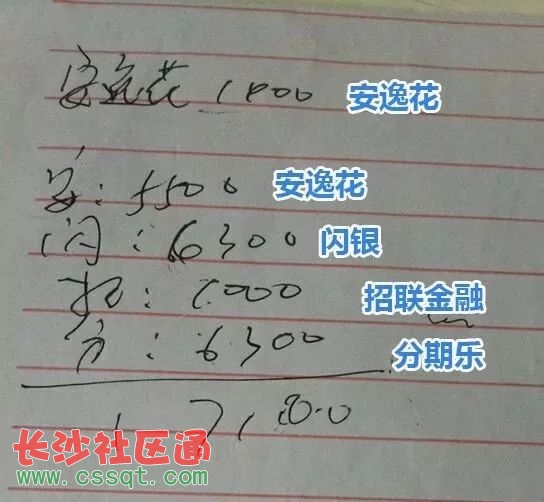 安逸花 1000 安逸花
安：5500 安逸花
闪：6300 闪银
招：1000 招联金融
分：6300 分期乐
长沙社区通
www.cssqt.com